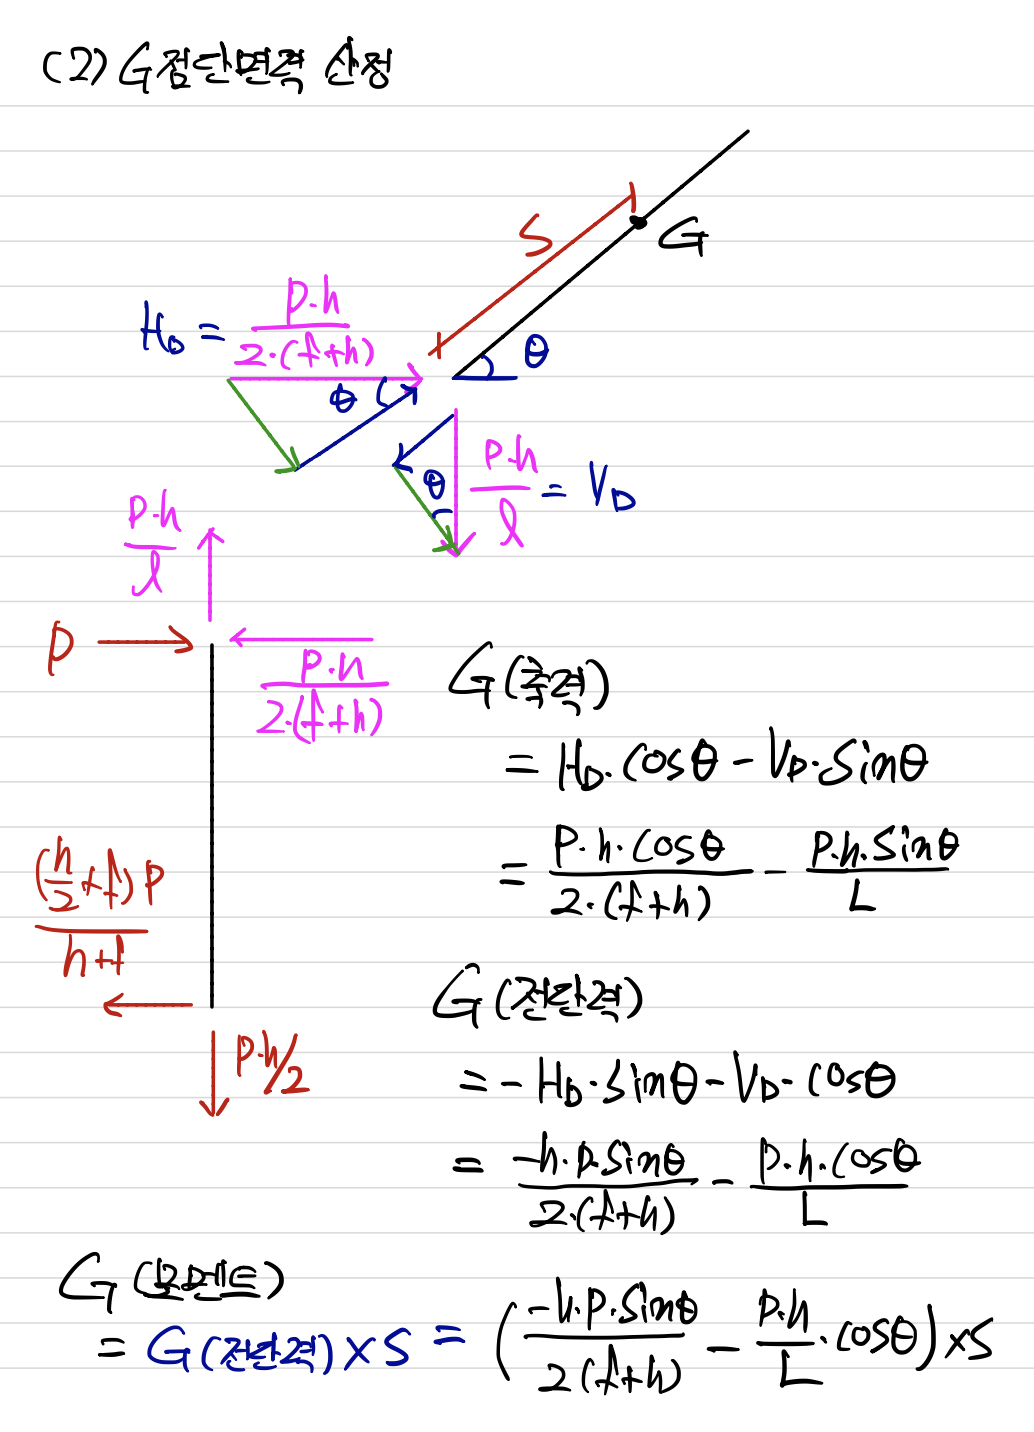 (2) G점단면력 산정
S
G
H_D = P·h / 2·(f+h)
θ
θ
θ
P·h / l = V_D
P·h / l
P
P·h / 2·(f+h)
G(축력)
= H_D·cosθ - V_D·sinθ
= P·h·cosθ / 2·(f+h) - P·h·sinθ / L
(h/2 + f)P / h+f
G(전단력)
P·h/2
= -H_D·sinθ - V_D·cosθ
= -h·P·sinθ / 2·(f+h) - P·h·cosθ / L
G(모멘트)
= G(전단력)×S = (-h·P·sinθ / 2(f+h) - P·h / L·cosθ)×S